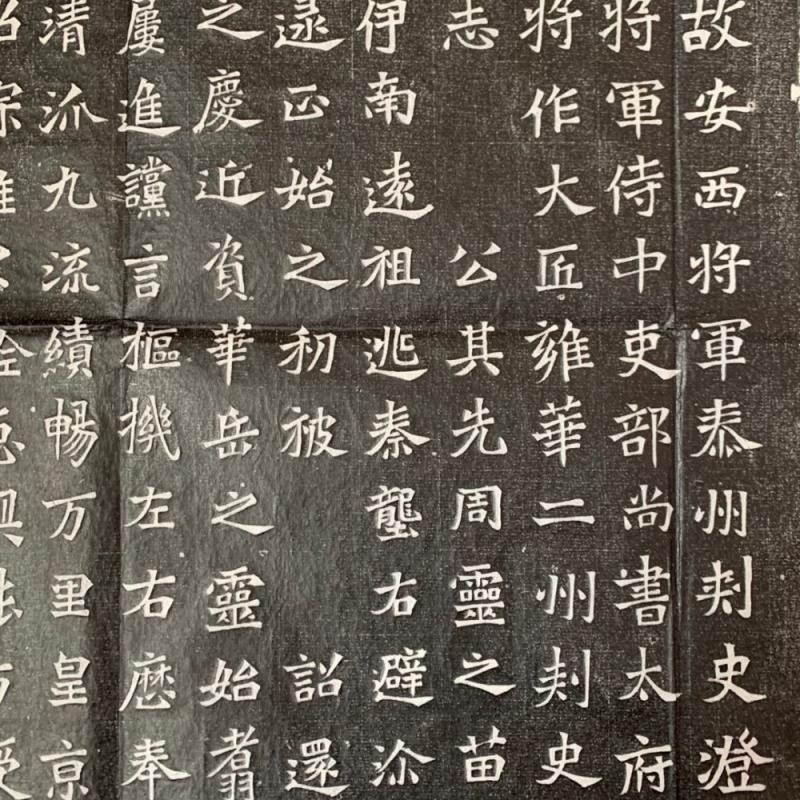 故安西将軍泰州刾史澄
将軍侍中吏部尚書太府
将作大匠雍華二州刾史
志 公其先周靈之苗
伊南遠祖逃秦壟右避沵
逮正始之初被 詔還
之慶近資華岳之靈始翥
屢進讜言樞機左右歴奉
清沠九流績暢万里皇京